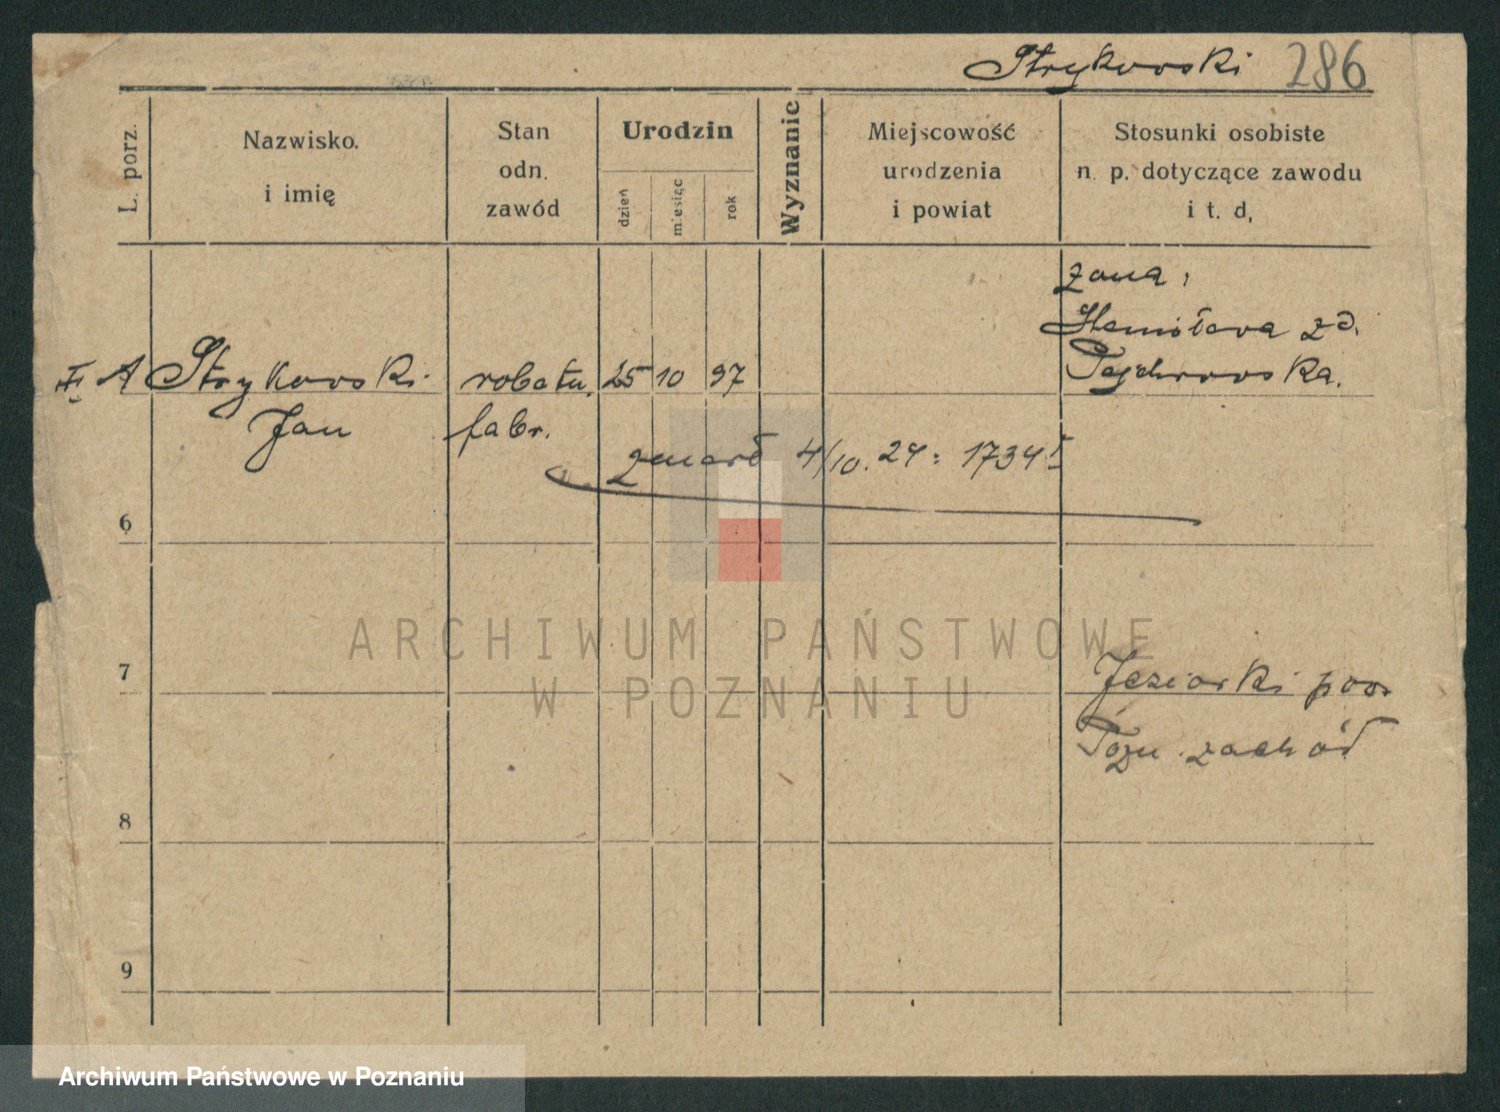 Strykowski 286
L. porz.
Nazwisko.
i imię
Stan
odn.
zawód
Urodzin
dzień
miesiąc
rok
Wyznanie
Miejscowość
urodzenia
i powiat
Stosunki osobiste
n. p. dotyczące zawodu
i t. d,
żona,
Stanisława zd.
A Strykowski robotn. 25 10 97
Jan fabr.
zmarł 4/10. 24: 1734
6
7
8
9
Jeziorki pow
Pozn. zachód
ARCHIWUM PAŃSTWOWE
W POZNANIU
Archiwum Państwowe w Poznaniu